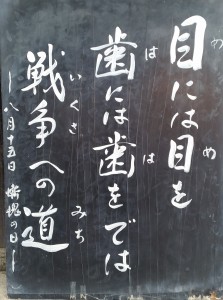 目には目を
歯には歯をでは
戦争への道
―八月十五日 慚愧の日―
め
は
は
いくさ
みち